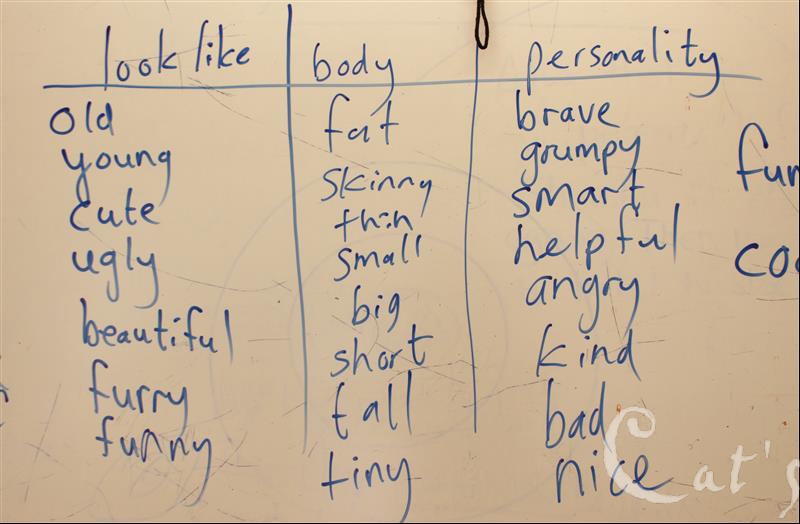 look like body personality
old fat brave
young skinny grumpy
cute thin smart
ugly small helpful
beautiful big angry
furry short kind
funny tall bad
tiny nice
Cat's